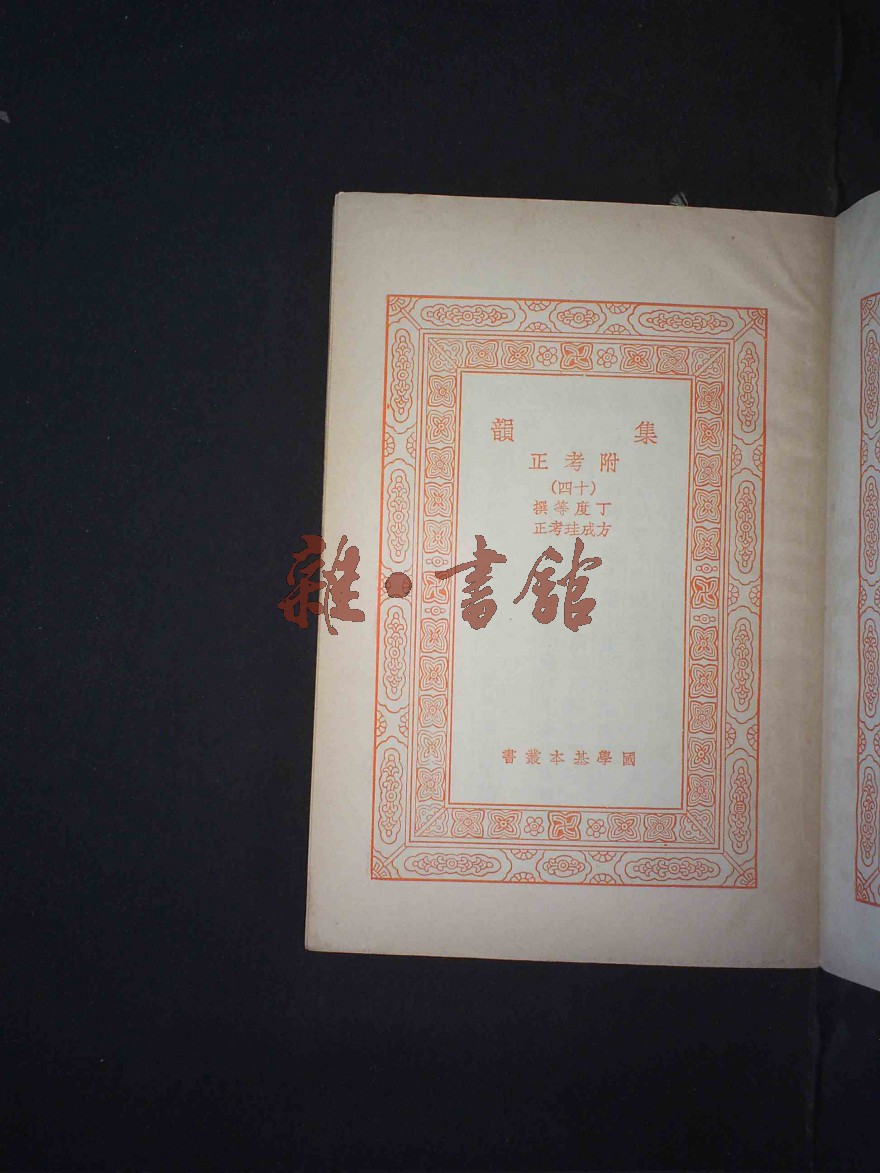 集韻
附考正
(十四)
丁度等撰
方成珪考正
雜·書館
國學基本叢書